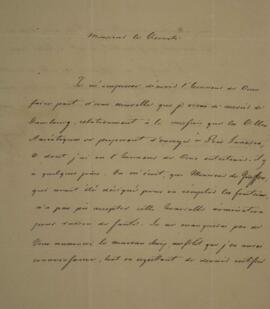 Monsieur le Vicomte
Je m'empresse d'avoir l'honneur de Vous
faire part d'une nouvelle que je viens de recevoir de
Hambourg, relativement à la mission que les Villes
Anséatiques se proposent d'envoyer à Rio Janeiro,
et dont j'ai eu l'honneur de Vous entretenir il y
a quelques jours. On m'écrit, que Monsieur de
qui avait été désigné pour en remplir les fonctions
n'a pas pu accepter cette honorable nomination
pour raison de santé. Je ne manquerai pas de
Vous annoncer le nouveau choix aussitôt que j'en aurai
connaissance, tout en regrettant de devoir rectifier